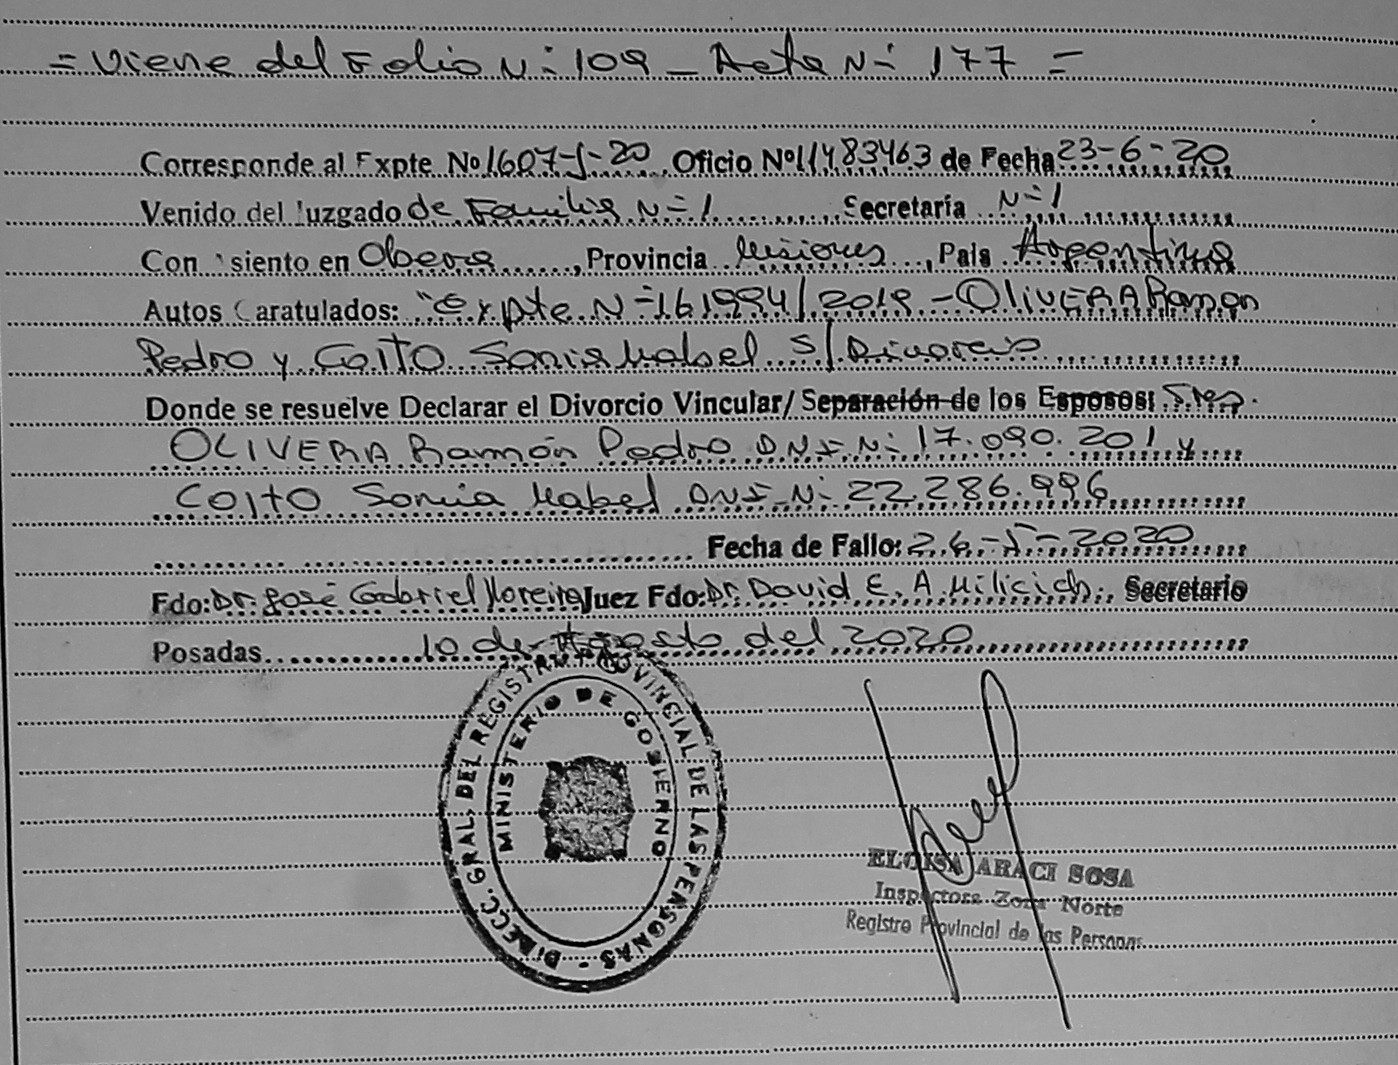 = Viene del Folio N= 109 - Acta N= 177 =
Corresponde al Expte Nº 1607-J-20 Oficio Nº 11483463 de Fecha 23-6-20
Venido del Juzgado de Familia N=1 Secretaría N=1
Con asiento en Obera, Provincia Misiones, País Argentina
Autos Caratulados: "Expte N=161994/2019 - OLIVERA Ramon
Pedro y COITO Sonia Mabel S/ Divorcio
Donde se resuelve Declarar el Divorcio Vincular/ Separación de los Esposos: Sres.
OLIVERA Ramón Pedro DNI N= 17.090.201 y
COITO Sonia Mabel DNI N= 22.286.996
Fecha de Fallo: 26-5-2020
Fdo: Dr. José Gabriel Moreira Juez Fdo: Dr. David E. A. Milicich Secretario
Posadas 10 de Agosto del 2020
DIRECC. GRAL. DEL REGISTRO PROVINCIAL DE LAS PERSONAS
MINISTERIO DE GOBIERNO
ELOISA ARACI SOSA
Inspectora Zona Norte
Registro Provincial de las Personas